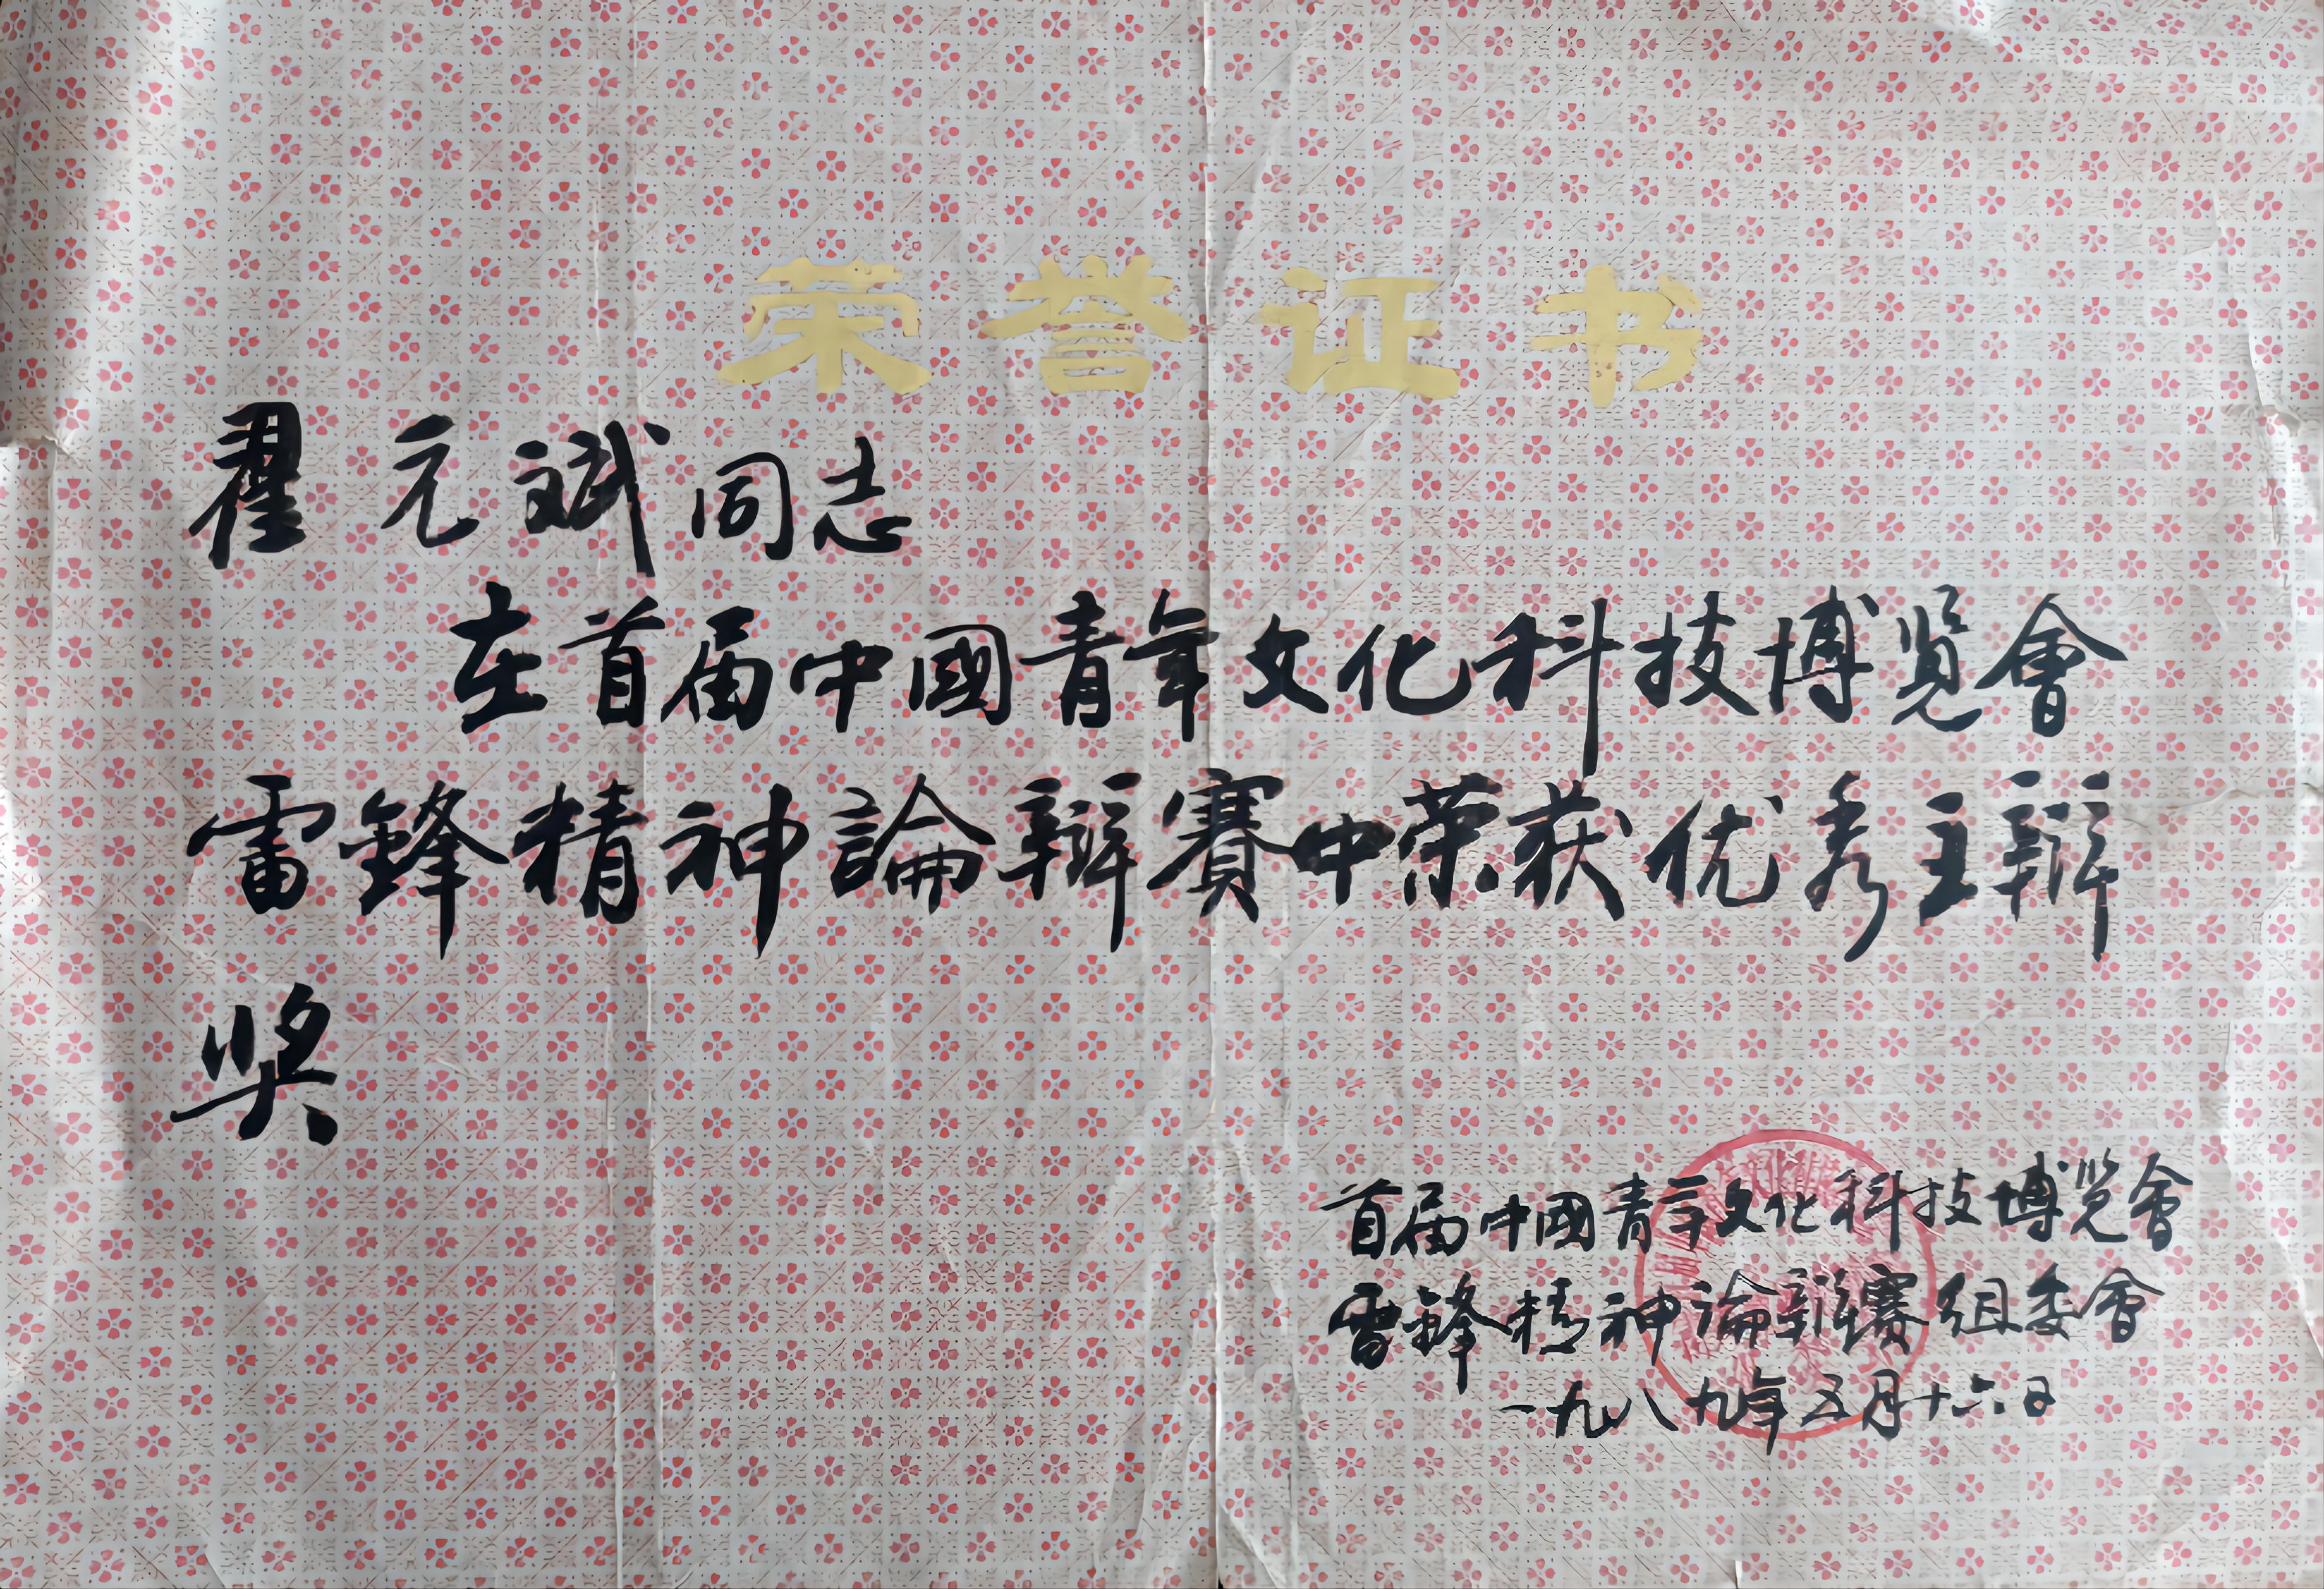 荣誉证书
翟元斌同志
在首届中國青年文化科技博览會
雷鋒精神論辯賽中荣获优秀主辯
奖
首届中國青年文化科技博览會
雷鋒精神論辯賽组委會
一九八九年五月十六日